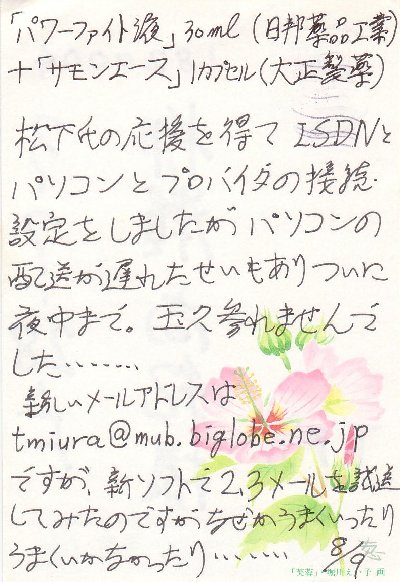 「パワーファイト液」30ml(日邦薬品工業)
+「サモンエース」1カプセル(大正製薬)
松下氏の応援を得て ISDNと
パソコンとプロバイダの接続・
設定をしましたがパソコンの
配送が遅れたせいもありついに
夜中まで。玉久参れませんで
した‥‥‥‥
新しいメールアドレスは
tmiura@mub.biglobe.ne.jp
ですが、新ソフトで2,3メールを試送
してみたのですがなぜかうまくいったり
うまくいかなかったり‥‥‥‥ 8/9
「芙蓉」 堀川え 子 画